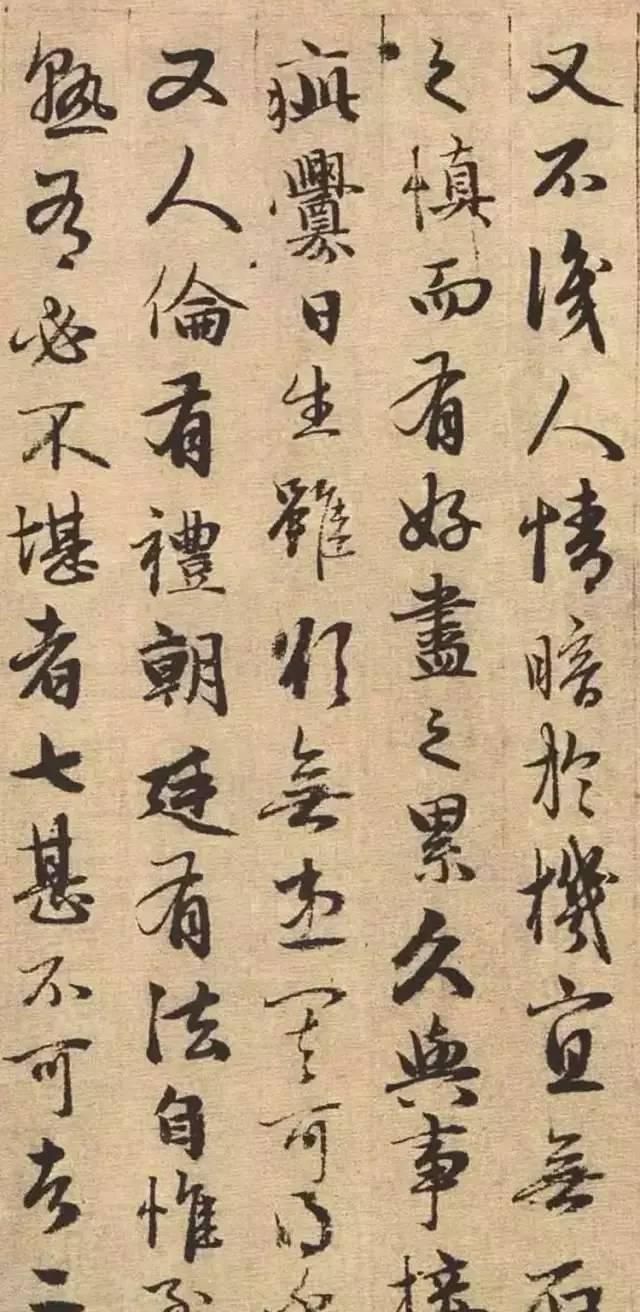 又不識人情暗於機宜無
之慎而有好盡之累久與事接
疵釁日生雖欲無患其可得乎
又人倫有禮朝廷有法自惟至
熟有必不堪者七甚不可者二